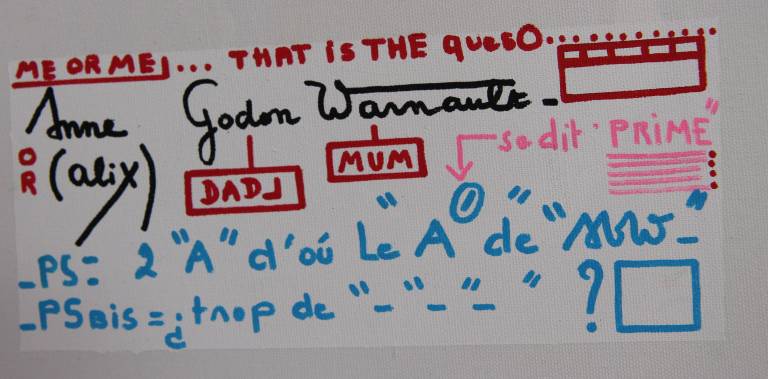 ME OR ME... THAT is THE quesO..........
Anne Godon Warnault_
OR (alix) DADJ MUM se dit "PRiME"
_PS= 2 "A" d'où Le "A" de "
_PSBis = trop de "-"-"-" ?